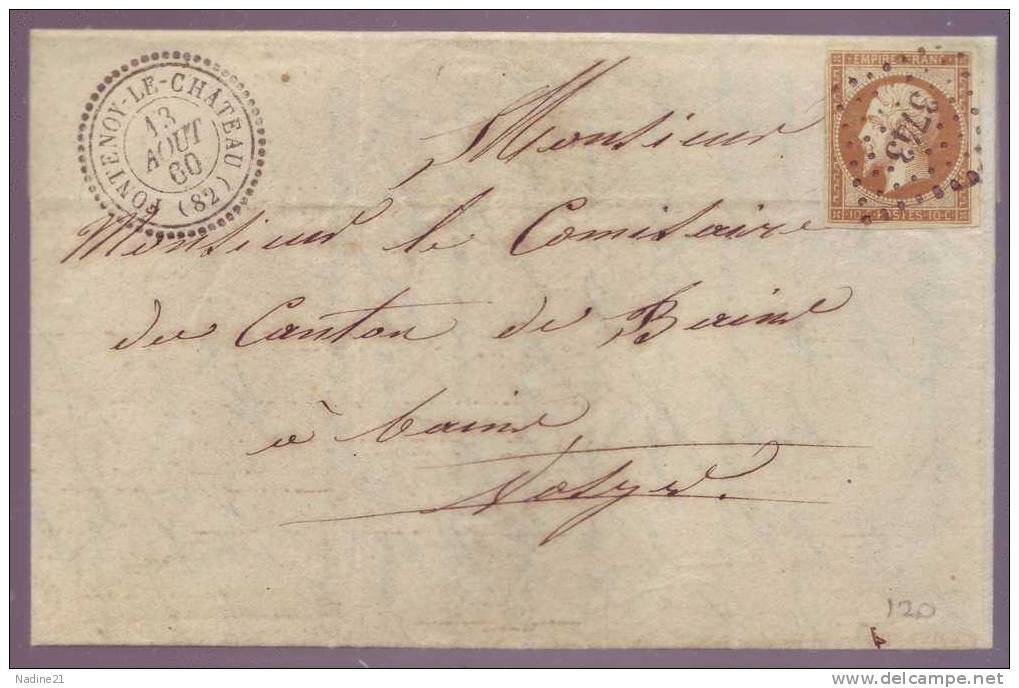 FONTENOY-LE-CHATEAU (82)
13
AOUT
60
EMPIRE FRANC
3743
10 C. POSTES 10 C.
Monsieur
Monsieur le Comisaire
du Canton de Bains
à bains
Vosges.
120
Nadine21
www.delcampe.net